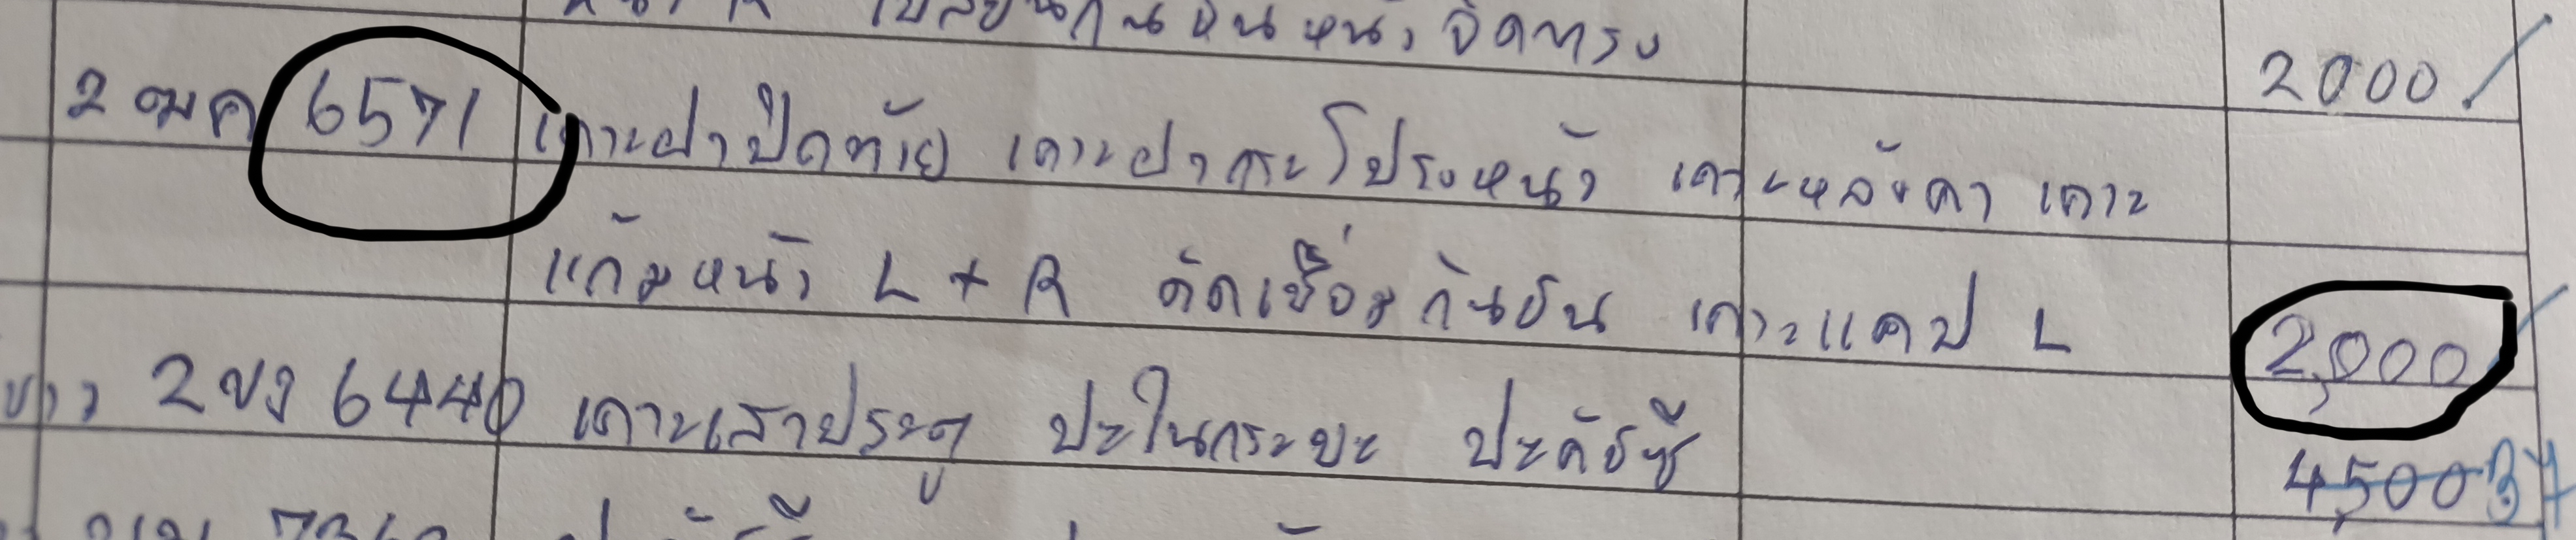 หน้า R เปลี่ยนกันชนหน้า จัดทรง 2000
2 ฒค 6571 เคาะฝาปิดท้าย เคาะฝากระโปรงหน้า เคาะหลังคา เคาะ
แก้มหน้า L + R ดัดเชื่อมกันชน เคาะแคป L 2,000
ขาว 2 ขง 6440 เคาะเสาประตู ปะในกระบะ ปะคัซซี 4,500